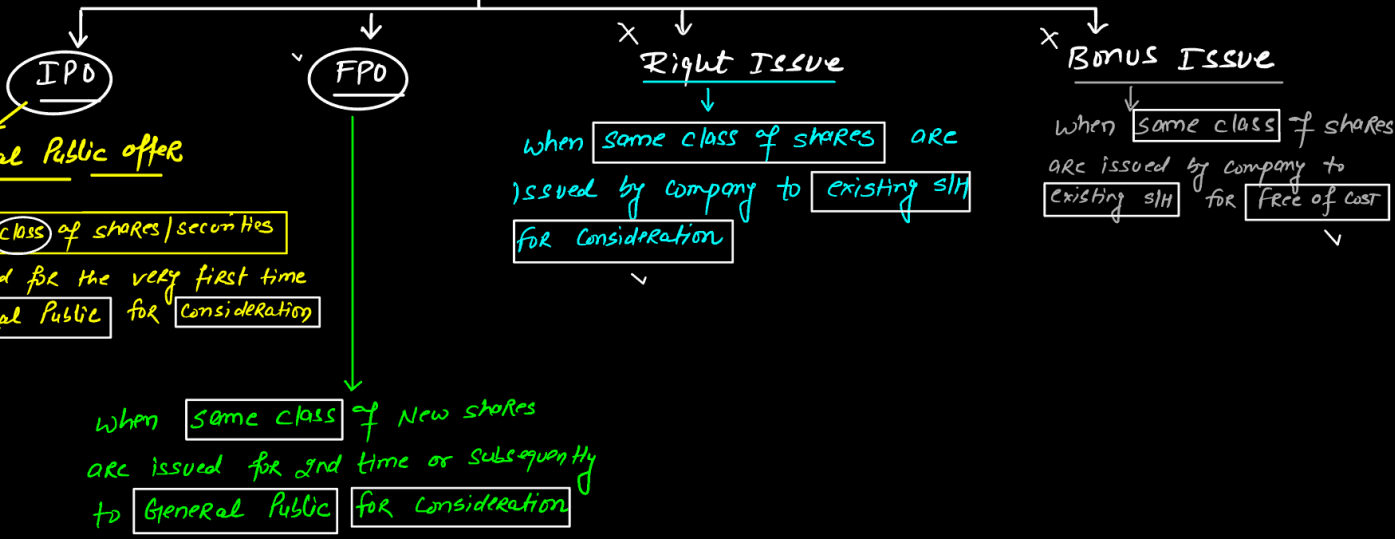 IPO
al Public offer
class of shares/securities
d for the very first time
al Public for consideration
FPO
when same class of New shares
are issued for 2nd time or subsequently
to General Public for consideration
X
Right Issue
when same class of shares are
issued by company to existing S/H
for consideration
X
Bonus Issue
when same class of shares
are issued by company to
existing S/H for free of cost